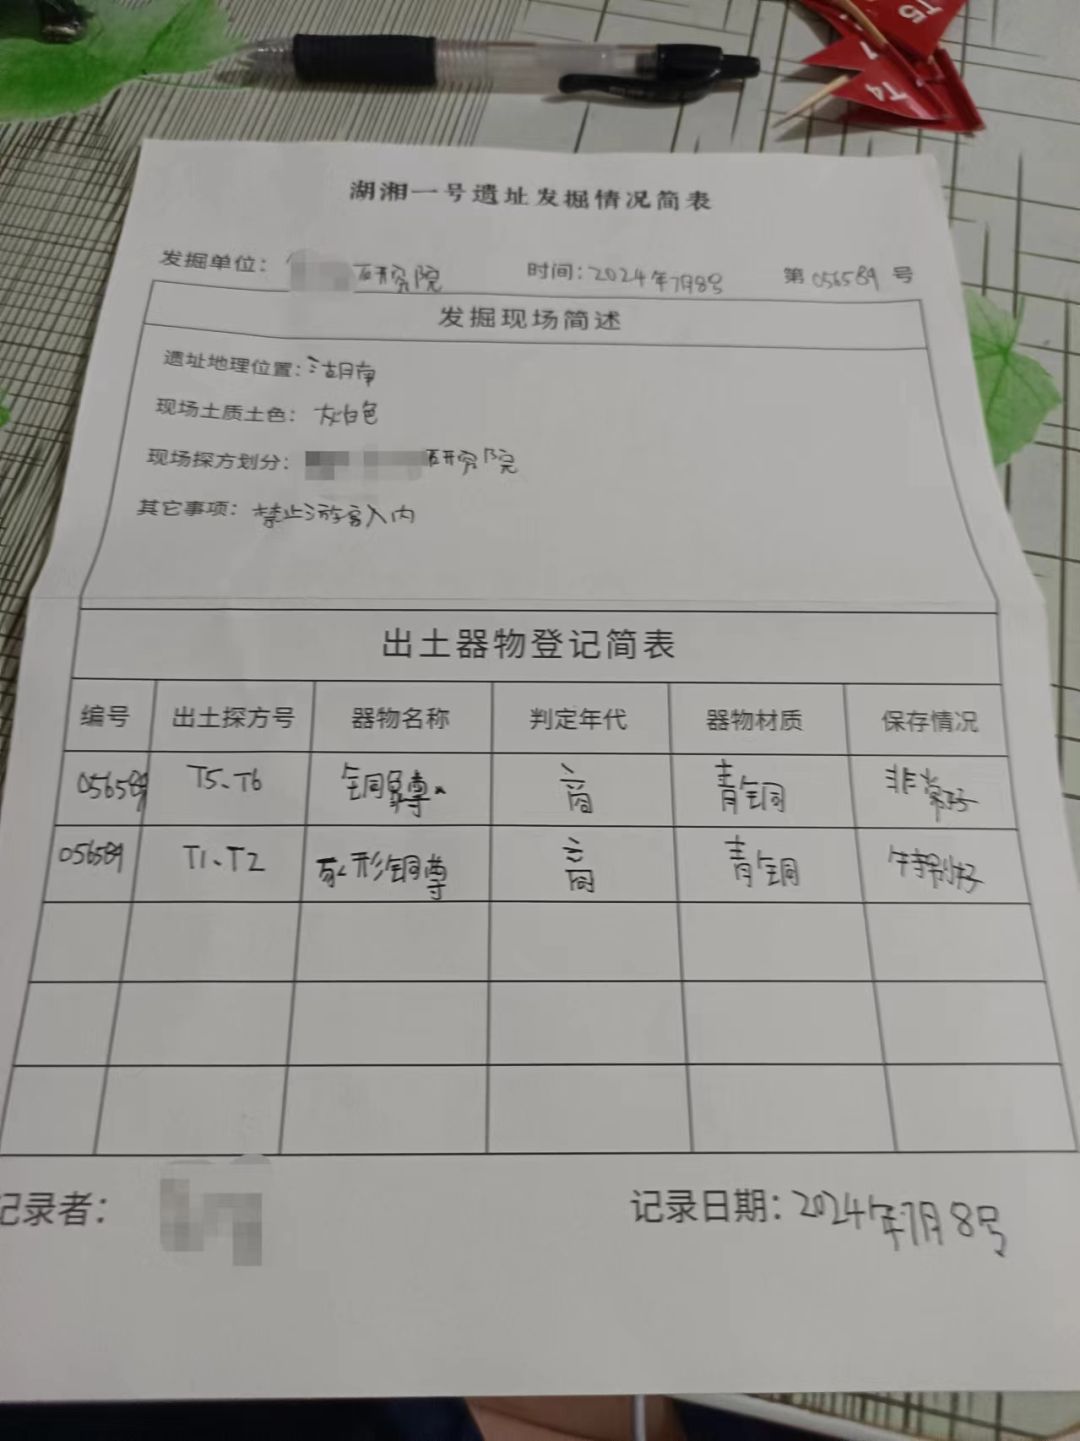 T5
T4
湖湘一号遗址发掘情况简表
发掘单位： 研究院 时间：2024年7月8号 第056589号
发掘现场简述
遗址地理位置：湖南
现场土质土色：灰白色
现场探方划分： 研究院
其它事项：禁止游客入内
出土器物登记简表
编号 出土探方号 器物名称 判定年代 器物材质 保存情况
056589 T5、T6 铜尊 商 青铜 非常好
056589 T1、T2 豕形铜尊 商 青铜 特别好
记录者： 记录日期：2024年7月8号